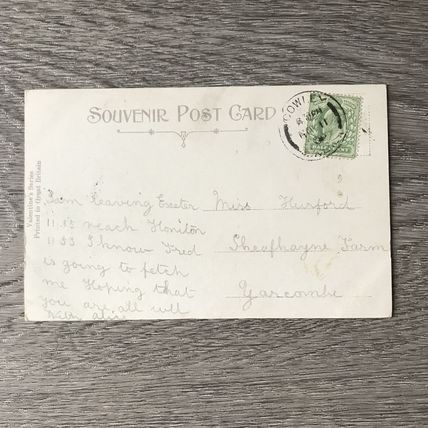 SOUVENIR POST CARD
COWLEY
8.30PM
11
Valentine's Series
Printed in Great Britain
I am leaving Exeter
11.15 reach Honiton
11.55 I know Fred
is going to fetch
me Hoping that
you are all well
Miss Hurford
Sheafhayne Farm
Yarcombe